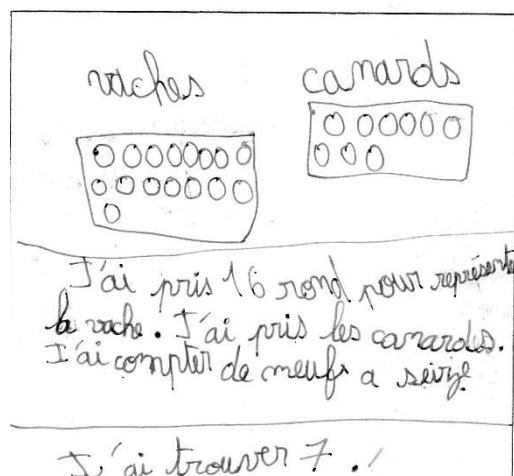 vaches canards
J'ai pris 16 rond pour représente
la vache. J'ai pris les canardes.
J'ai compter de neufs a seize
J'ai trouver 7.